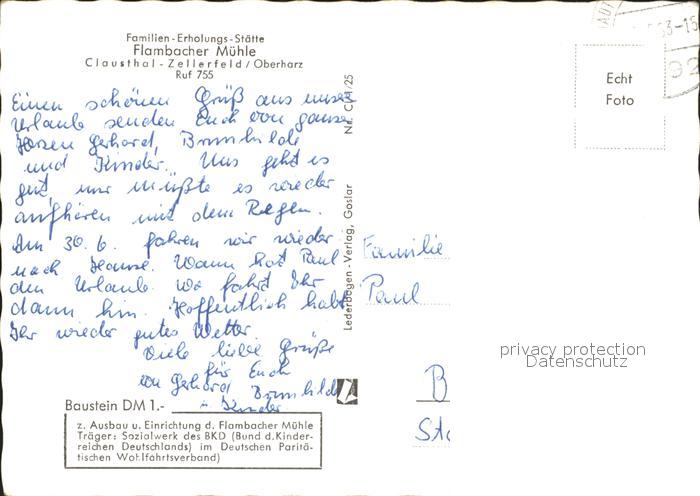 Familien-Erholungs-Stätte
Flambacher Mühle
Clausthal-Zellerfeld/Oberharz
Ruf 755
Einen schönen Gruß aus unsen
Urlaub senden Euch von ganzen
Herzen Gerhard, Brunhilde
und Kinder. Uns geht es
gut, nur müßte es wieder
aufhören mit dem Regen.
Am 30.6. fahren wir wieder
nach Hause. Wann hat Paul
den Urlaub. Wo fahrt Ihr
dann hin. Hoffentlich habt
Ihr wieder gutes Wetter
Viele liebe Grüße
für Euch
von Gerhard Brunhilde
u. Kinder
Baustein DM 1.-
z. Ausbau u. Einrichtung d. Flambacher Mühle
Träger: Sozialwerk des BKD (Bund d. Kinder-
reichen Deutschlands) im Deutschen Paritä-
tischen Wohlfahrtsverband)
Lederbogen-Verlag, Goslar
Echt
Foto
Familie
Paul
B
Sta
privacy protection
Datenschutz